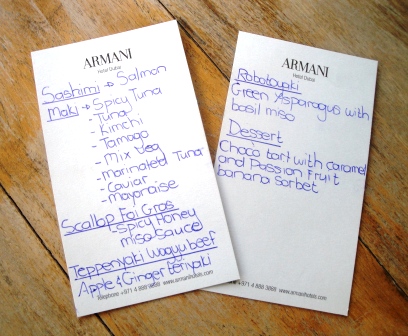 ARMANI
Hotel Dubai
Sashimi → Salmon
Maki → Spicy Tuna
- Tuna
- Kimchi
- Tamago
- Mix Veg
- marinated Tuna
- Caviar
- mayonaise
Scallop Foi Gras
- Spicy Honey
miso Sauce
Teppenyaki wagyu beef
Apple & Ginger teriyaki
Telephone +971 4 888 3888 www.armanihotels.com
ARMANI
Hotel Dubai
Robatayaki
Green Asparagus with
basil miso
Dessert
Choco tart with caramel
and Passion Fruit
banana sorbet
Telephone +971 4 888 3888 www.armanihotels.com